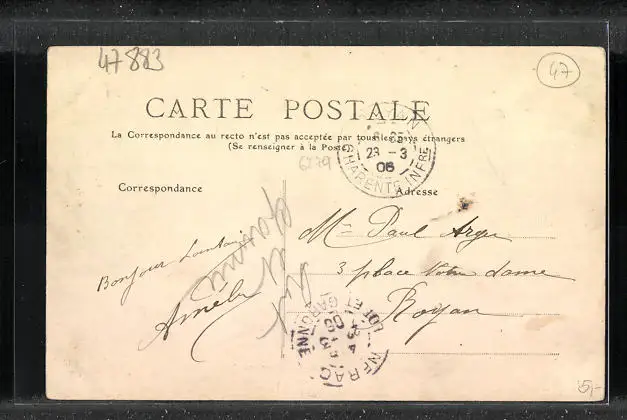 47883
47
CARTE POSTALE
La Correspondance au recto n'est pas acceptée par tous les pays étrangers
(Se renseigner à la Poste)
6779
23 -3
06
CHARENTE INFRE
Correspondance
Adresse
Bonjour Lointain
Amélie
Lot et Garonne
Mme Paul
3 place Notre dame
Royan
NERAC
LOT ET GARONNE
5,-